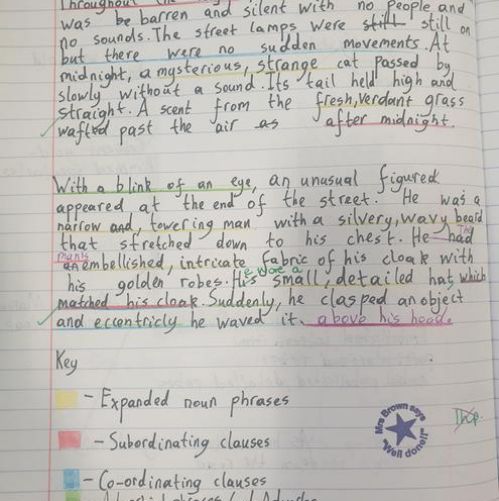 Throughout the
was be barren and silent with no people and
no sounds. The street lamps were still still on
but there were no sudden movements. At
midnight, a mysterious, strange cat passed by
slowly without a sound. Its tail held high and
straight. A scent from the fresh, verdant grass
wafted past the air as after midnight.
With a blink of an eye, an unusual figured
appeared at the end of the street. He was a
narrow and, towering man with a silvery, wavy beard
that stretched down to his chest. He had The
man's an embellished, intricate fabric of his cloak with
his golden robes. His e wore a small, detailed hat, which
matched his cloak. Suddenly, he clasped an object
and eccentricly he waved it. above his head.
Key
- Expanded noun phrases
- Subordinating clauses
- Co-ordinating clauses
Mrs Brown says
"Well done!"